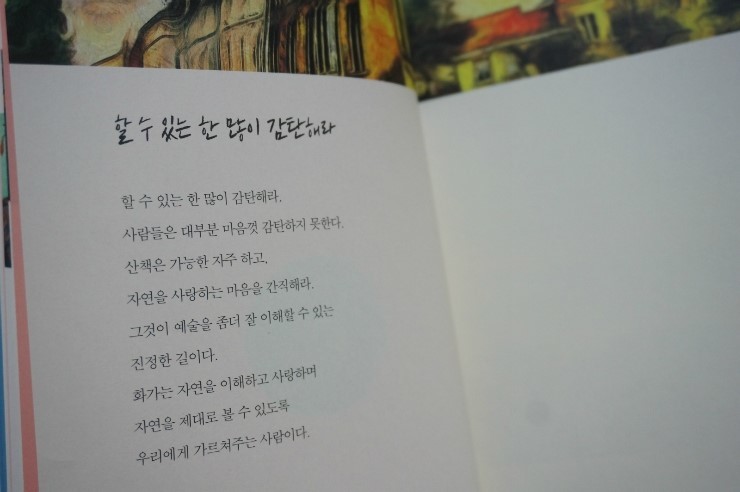 할 수 있는 한 많이 감탄해라
할 수 있는 한 많이 감탄해라.
사람들은 대부분 마음껏 감탄하지 못한다.
산책은 가능한 자주 하고,
자연을 사랑하는 마음을 간직해라.
그것이 예술을 좀더 잘 이해할 수 있는
진정한 길이다.
화가는 자연을 이해하고 사랑하며
자연을 제대로 볼 수 있도록
우리에게 가르쳐주는 사람이다.